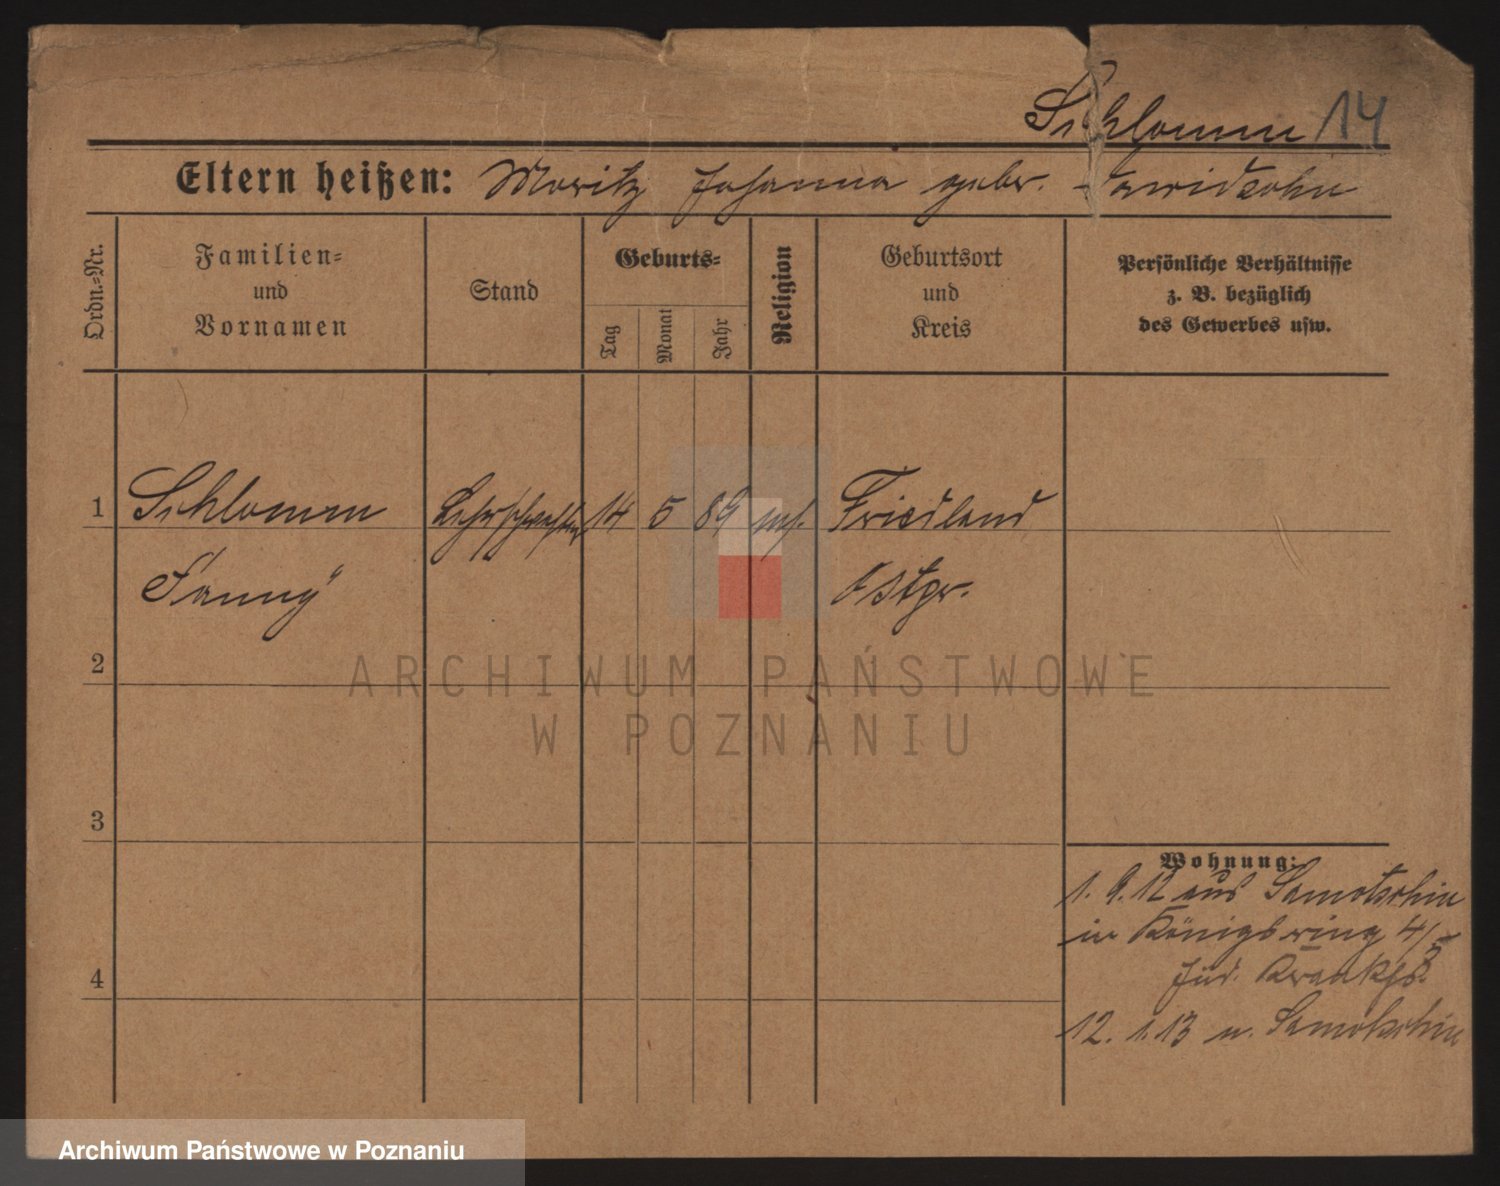 Schlomm 14
Eltern heißen: Moritz Johanna gebr. Dawidsohn
Ordn.=Nr.
Familien=
und
Vornamen
Stand
Geburts=
Tag
Monat
Jahr
Religion
Geburtsort
und
Kreis
Persönliche Verhältnisse
z. B. bezüglich
des Gewerbes usw.
1 Schlomm 14 5 89 Friedland
Fanny Ostpr.
2
ARCHIWUM PAŃSTWOWE
W POZNANIU
3
Wohnung:
1. 9. 12 aus Samotschin
in Königsring 4/5
jüd. Krankhs.
4
12. 1. 13 n. Samotschin
Archiwum Państwowe w Poznaniu